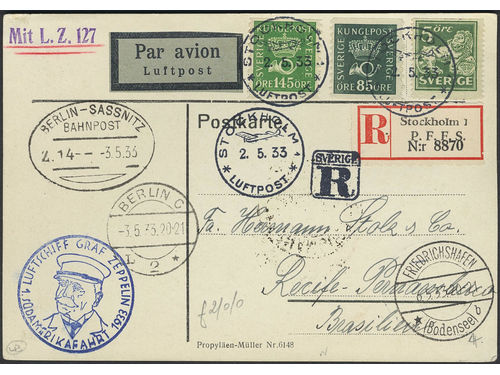 Mit L. Z. 127
Par avion
Luftpost
SVERIGE
ÖRE 145 ÖRE
KUNGLPOST
SVERIGE
ÖRE 85 ÖRE
15
ÖRE
SVERIGE
STOCKHOLM 1
2. 5. 33
LUFTPOST
BERLIN-SASSNITZ
BAHNPOST
Z.14 - - 3.5.33
Postkarte
STOCKHOLM 1
2. 5. 33
* LUFTPOST *
R
Stockholm 1
P. F. F. S.
N:r 8870
SVERIGE
R
BERLIN C
-3.5.33.20-21
2 *
Fa. Hermann Stolz & Co.
Recife-Pernambuco
Brasilien
FRIEDRICHSHAFEN
(Bodensee) b
LUFTSCHIFF GRAF ZEPPELIN
1. SÜDAMERIKAFAHRT 1933
Propyläen-Müller Nr. 6148